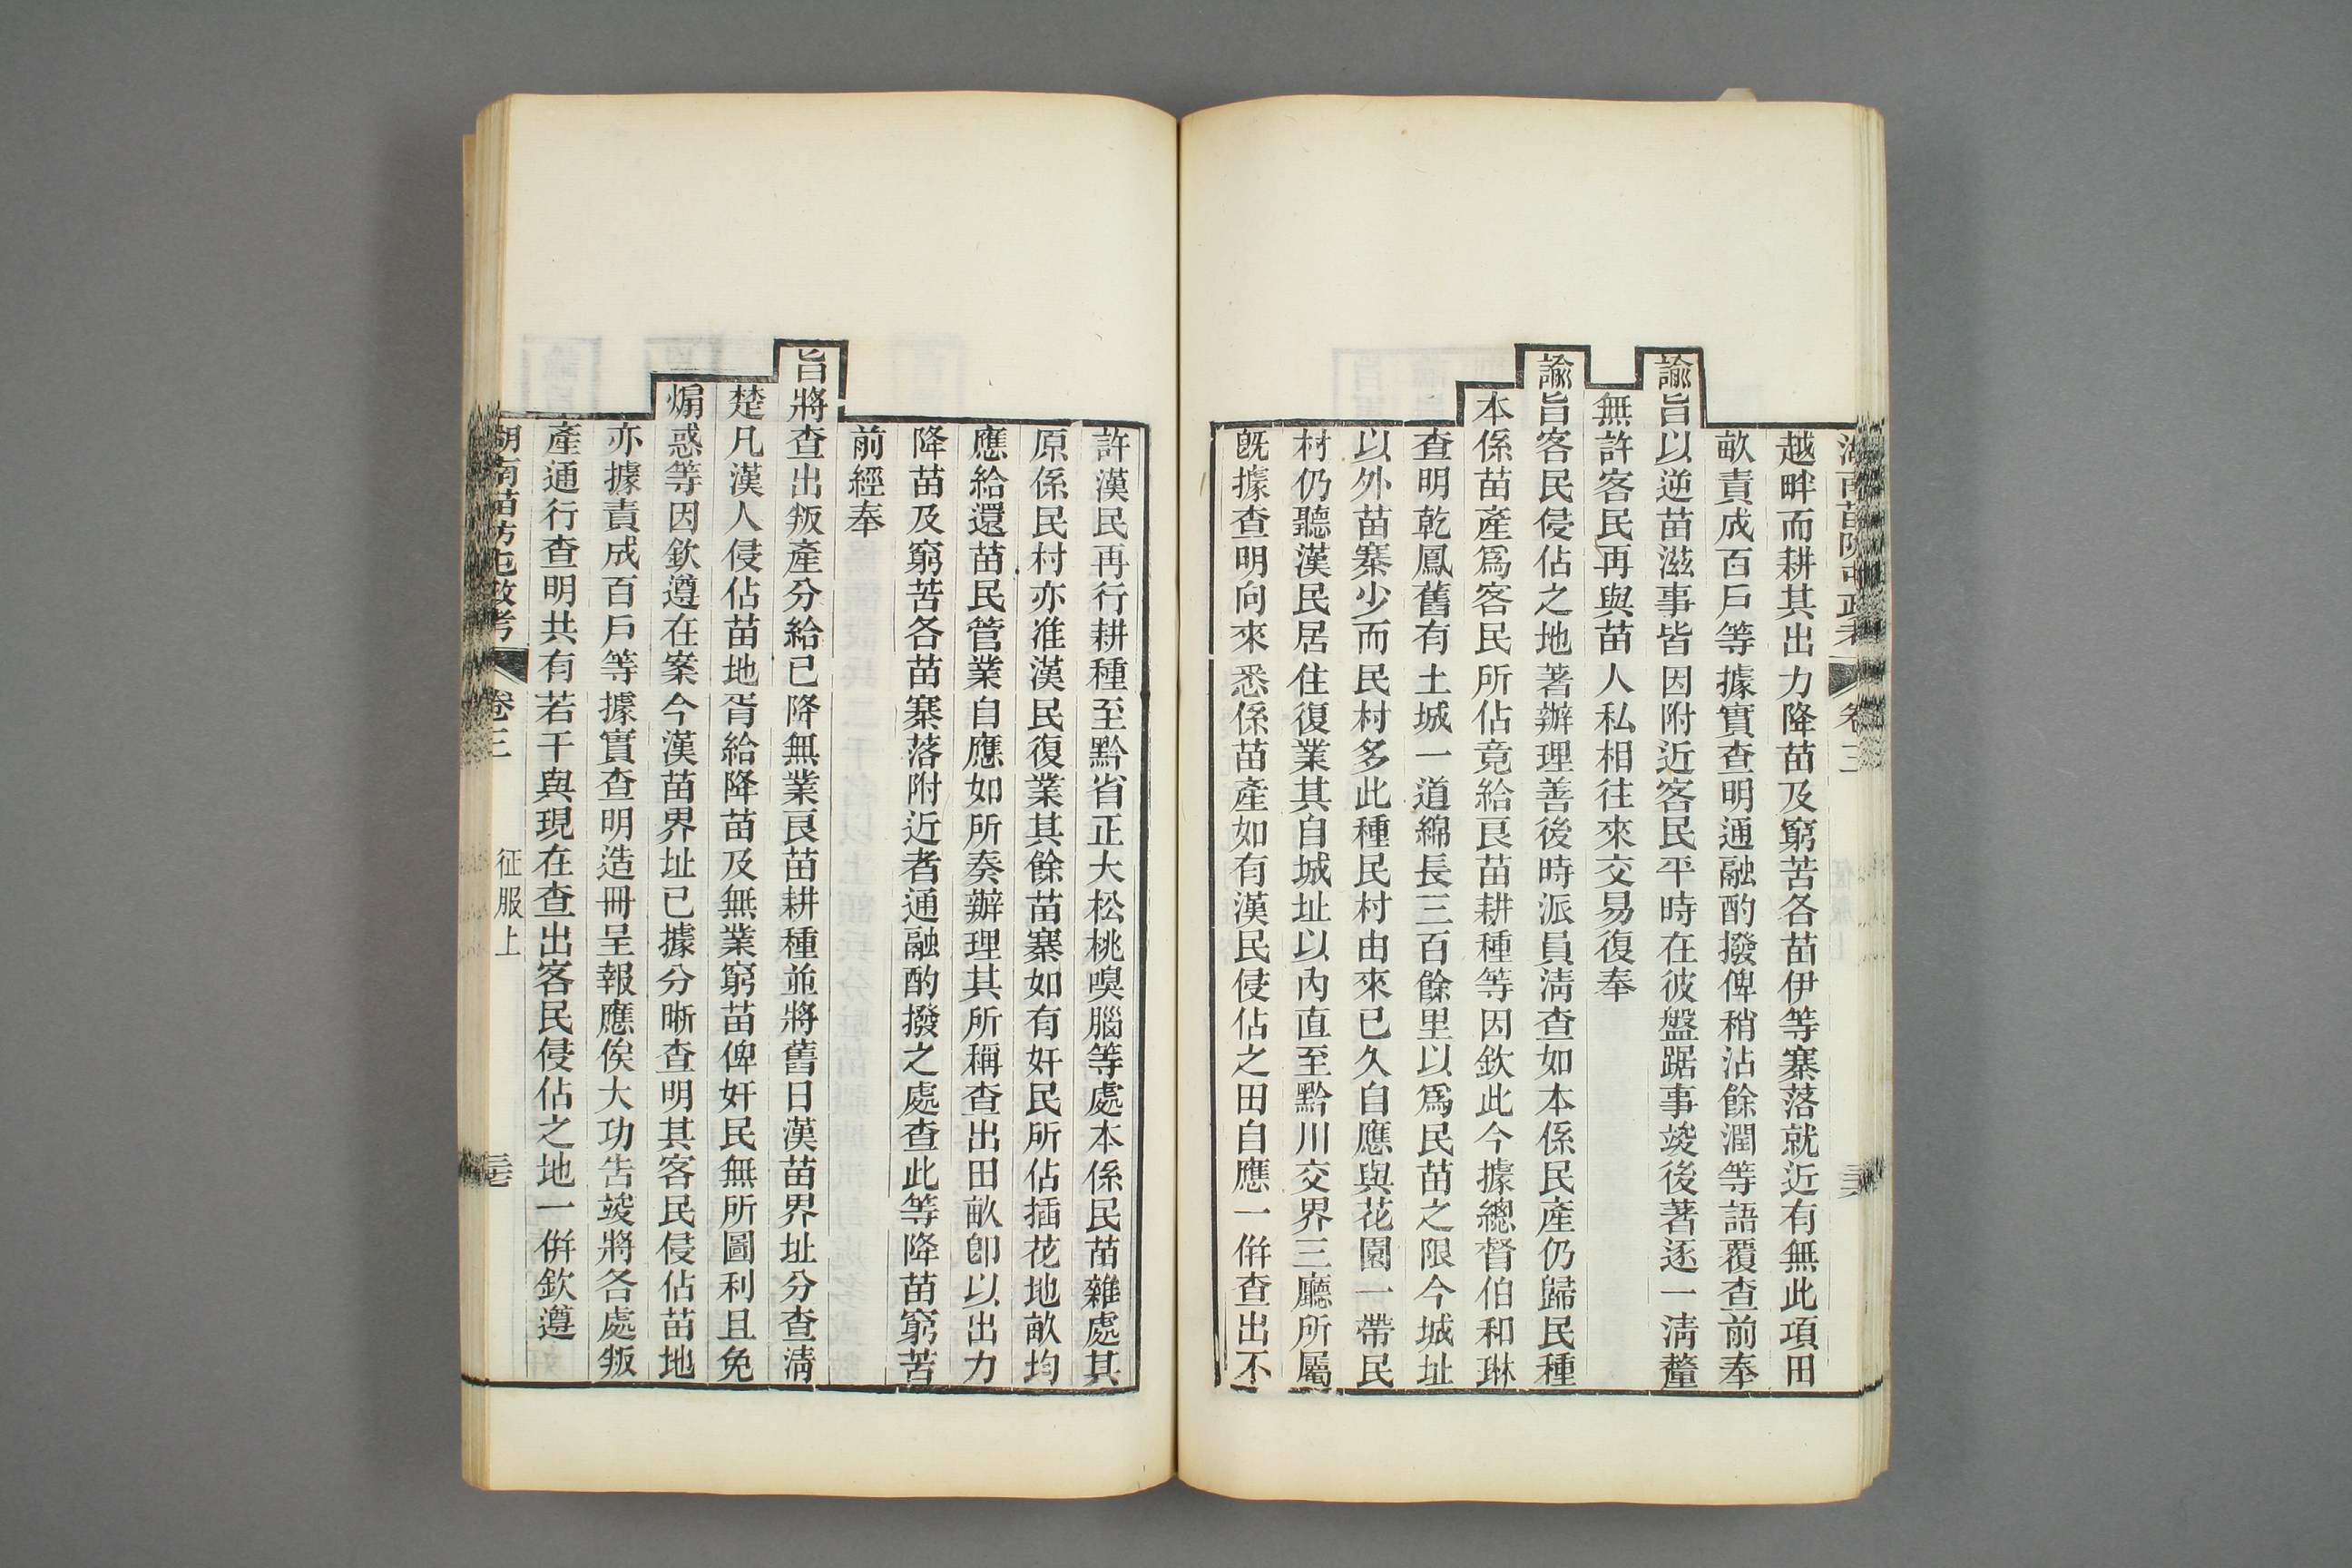 越畔而耕其出力降苗及窮苦各苗伊等寨落就近有無此項田
畝責成百戶等據實查明通融酌撥俾稍沾餘潤等語覆查前奉
諭旨以逆苗滋事皆因附近客民平時在彼盤踞事竣後著逐一淸釐
無許客民再與苗人私相往來交易復奉
諭旨客民侵佔之地著辦理善後時派員淸查如本係民產仍歸民種
本係苗產爲客民所佔竟給良苗耕種等因欽此今據總督伯和琳
查明乾鳳舊有土城一道綿長三百餘里以爲民苗之限今城址
以外苗寨少而民村多此種民村由來已久自應與花園一帶民
村仍聽漢民居住復業其自城址以內直至黔川交界三廳所屬
旣據查明向來悉係苗產如有漢民侵佔之田自應一倂查出不
許漢民再行耕種至黔省正大松桃嗅腦等處本係民苗雜處其
原係民村亦准漢民復業其餘苗寨如有奸民所佔插花地畝均
應給還苗民管業自應如所奏辦理其所稱查出田畝卽以出力
降苗及窮苦各苗寨落附近者通融酌撥之處查此等降苗窮苦
前經奉
旨將查出叛產分給已降無業良苗耕種並將舊日漢苗界址分查淸
楚凡漢人侵佔苗地胥給降苗及無業窮苗俾奸民無所圖利且免
煽惑等因欽遵在案今漢苗界址已據分晰查明其客民侵佔苗地
亦據責成百戶等據實查明造冊呈報應俟大功吿竣將各處叛
產通行查明共有若干與現在查出客民侵佔之地一倂欽遵
湖南苗防屯政考 卷三 征服上